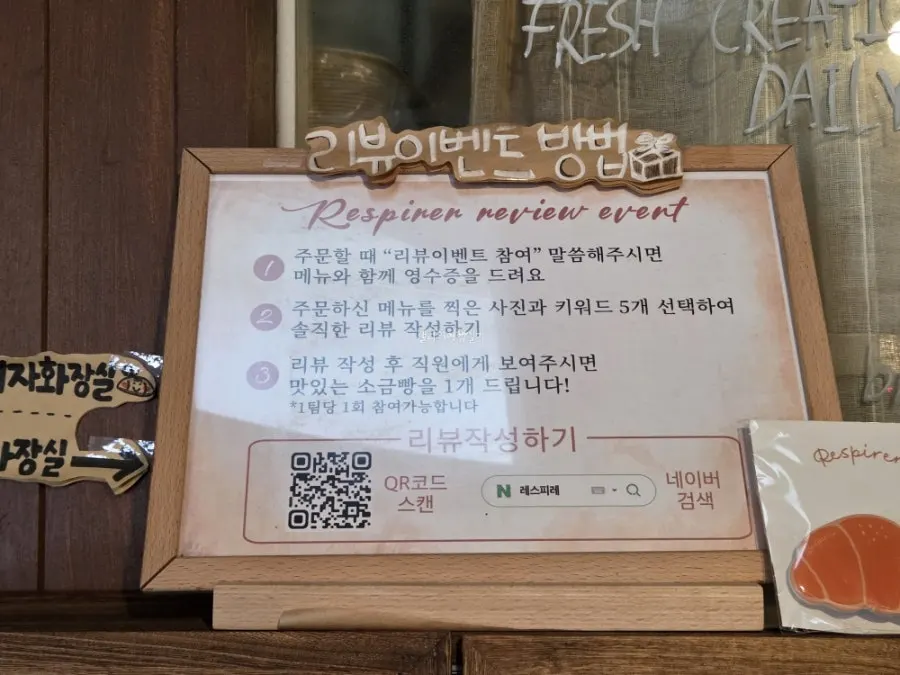 FRESH CREATI
DAILY
리뷰이벤트 방법
Respirer review event
1 주문할 때 “리뷰이벤트 참여” 말씀해주시면
메뉴와 함께 영수증을 드려요
2 주문하신 메뉴를 찍은 사진과 키워드 5개 선택하여
솔직한 리뷰 작성하기
3 리뷰 작성 후 직원에게 보여주시면
맛있는 소금빵을 1개 드립니다!
*1팀당 1회 참여가능합니다
리뷰작성하기
QR코드
스캔
N 레스피레
네이버
검색
자화장실
화장실
Respirer